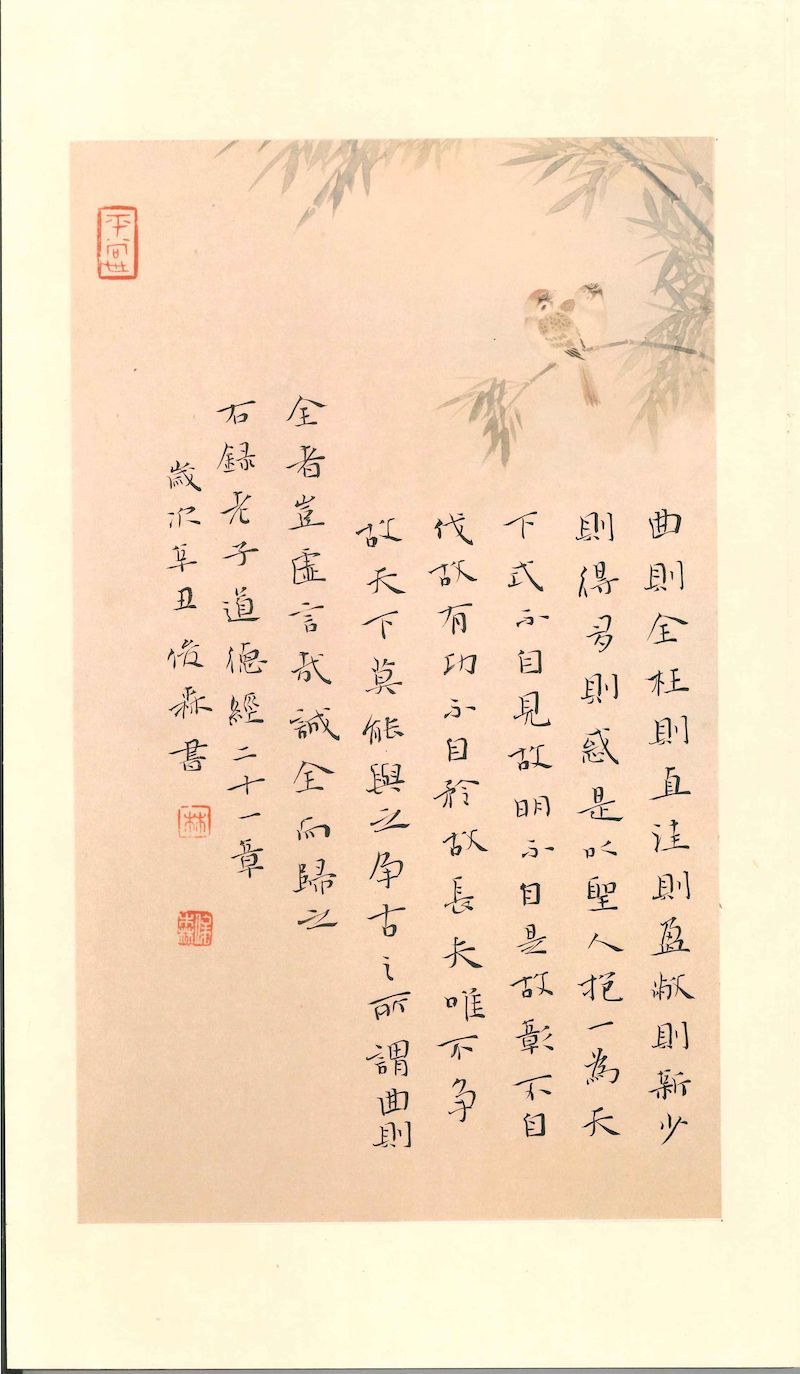 曲則全枉則直洼則盈敝則新少
則得多則惑是以聖人抱一為天
下式不自見故明不自是故彰不自
伐故有功不自矜故長夫唯不争
故天下莫能與之争古之所謂曲則
全者豈虛言哉誠全而歸之
右録老子道德經二十一章
歲次辛丑俊森書
林